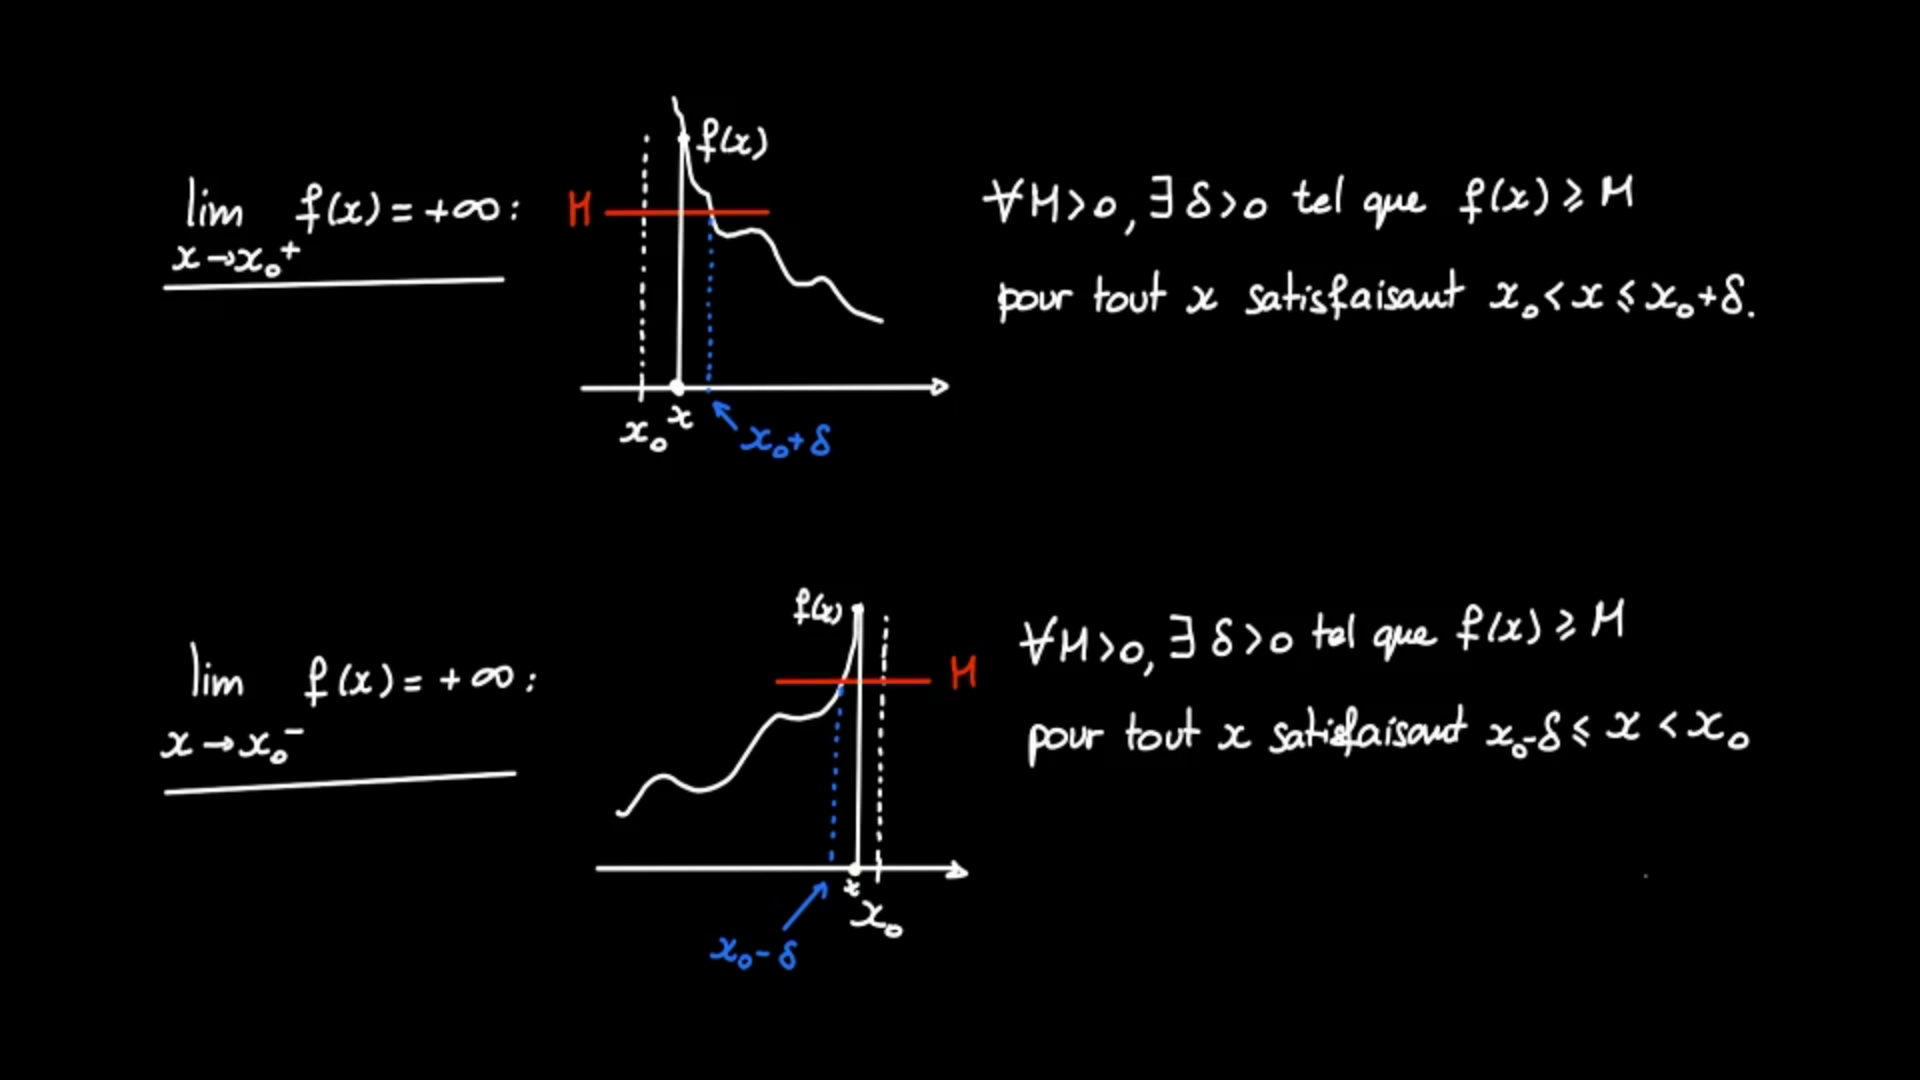 lim f(x) = +∞ :
x→x₀⁺
f(x)
M
x₀ x
x₀+δ
∀M>0, ∃ δ>0 tel que f(x) ⩾ M
pour tout x satisfaisant x₀ < x ⩽ x₀+δ.
lim f(x) = +∞ :
x→x₀⁻
f(x)
M
x
x₀
x₀-δ
∀M>0, ∃ δ>0 tel que f(x) ⩾ M
pour tout x satisfaisant x₀-δ ⩽ x < x₀